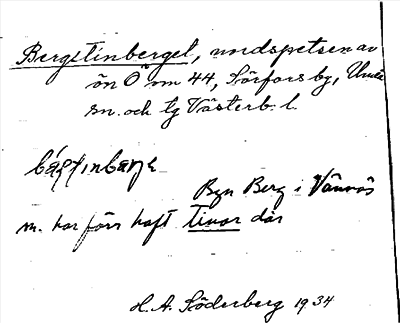 Bergstinberget, uddspetsen av
ön Ö om 44, Sörfors by, Umeå
sn. och tg Västerb. l.
Byn Berg i Vännäs
m. har förr haft tinor där
H. A. Söderberg 1934